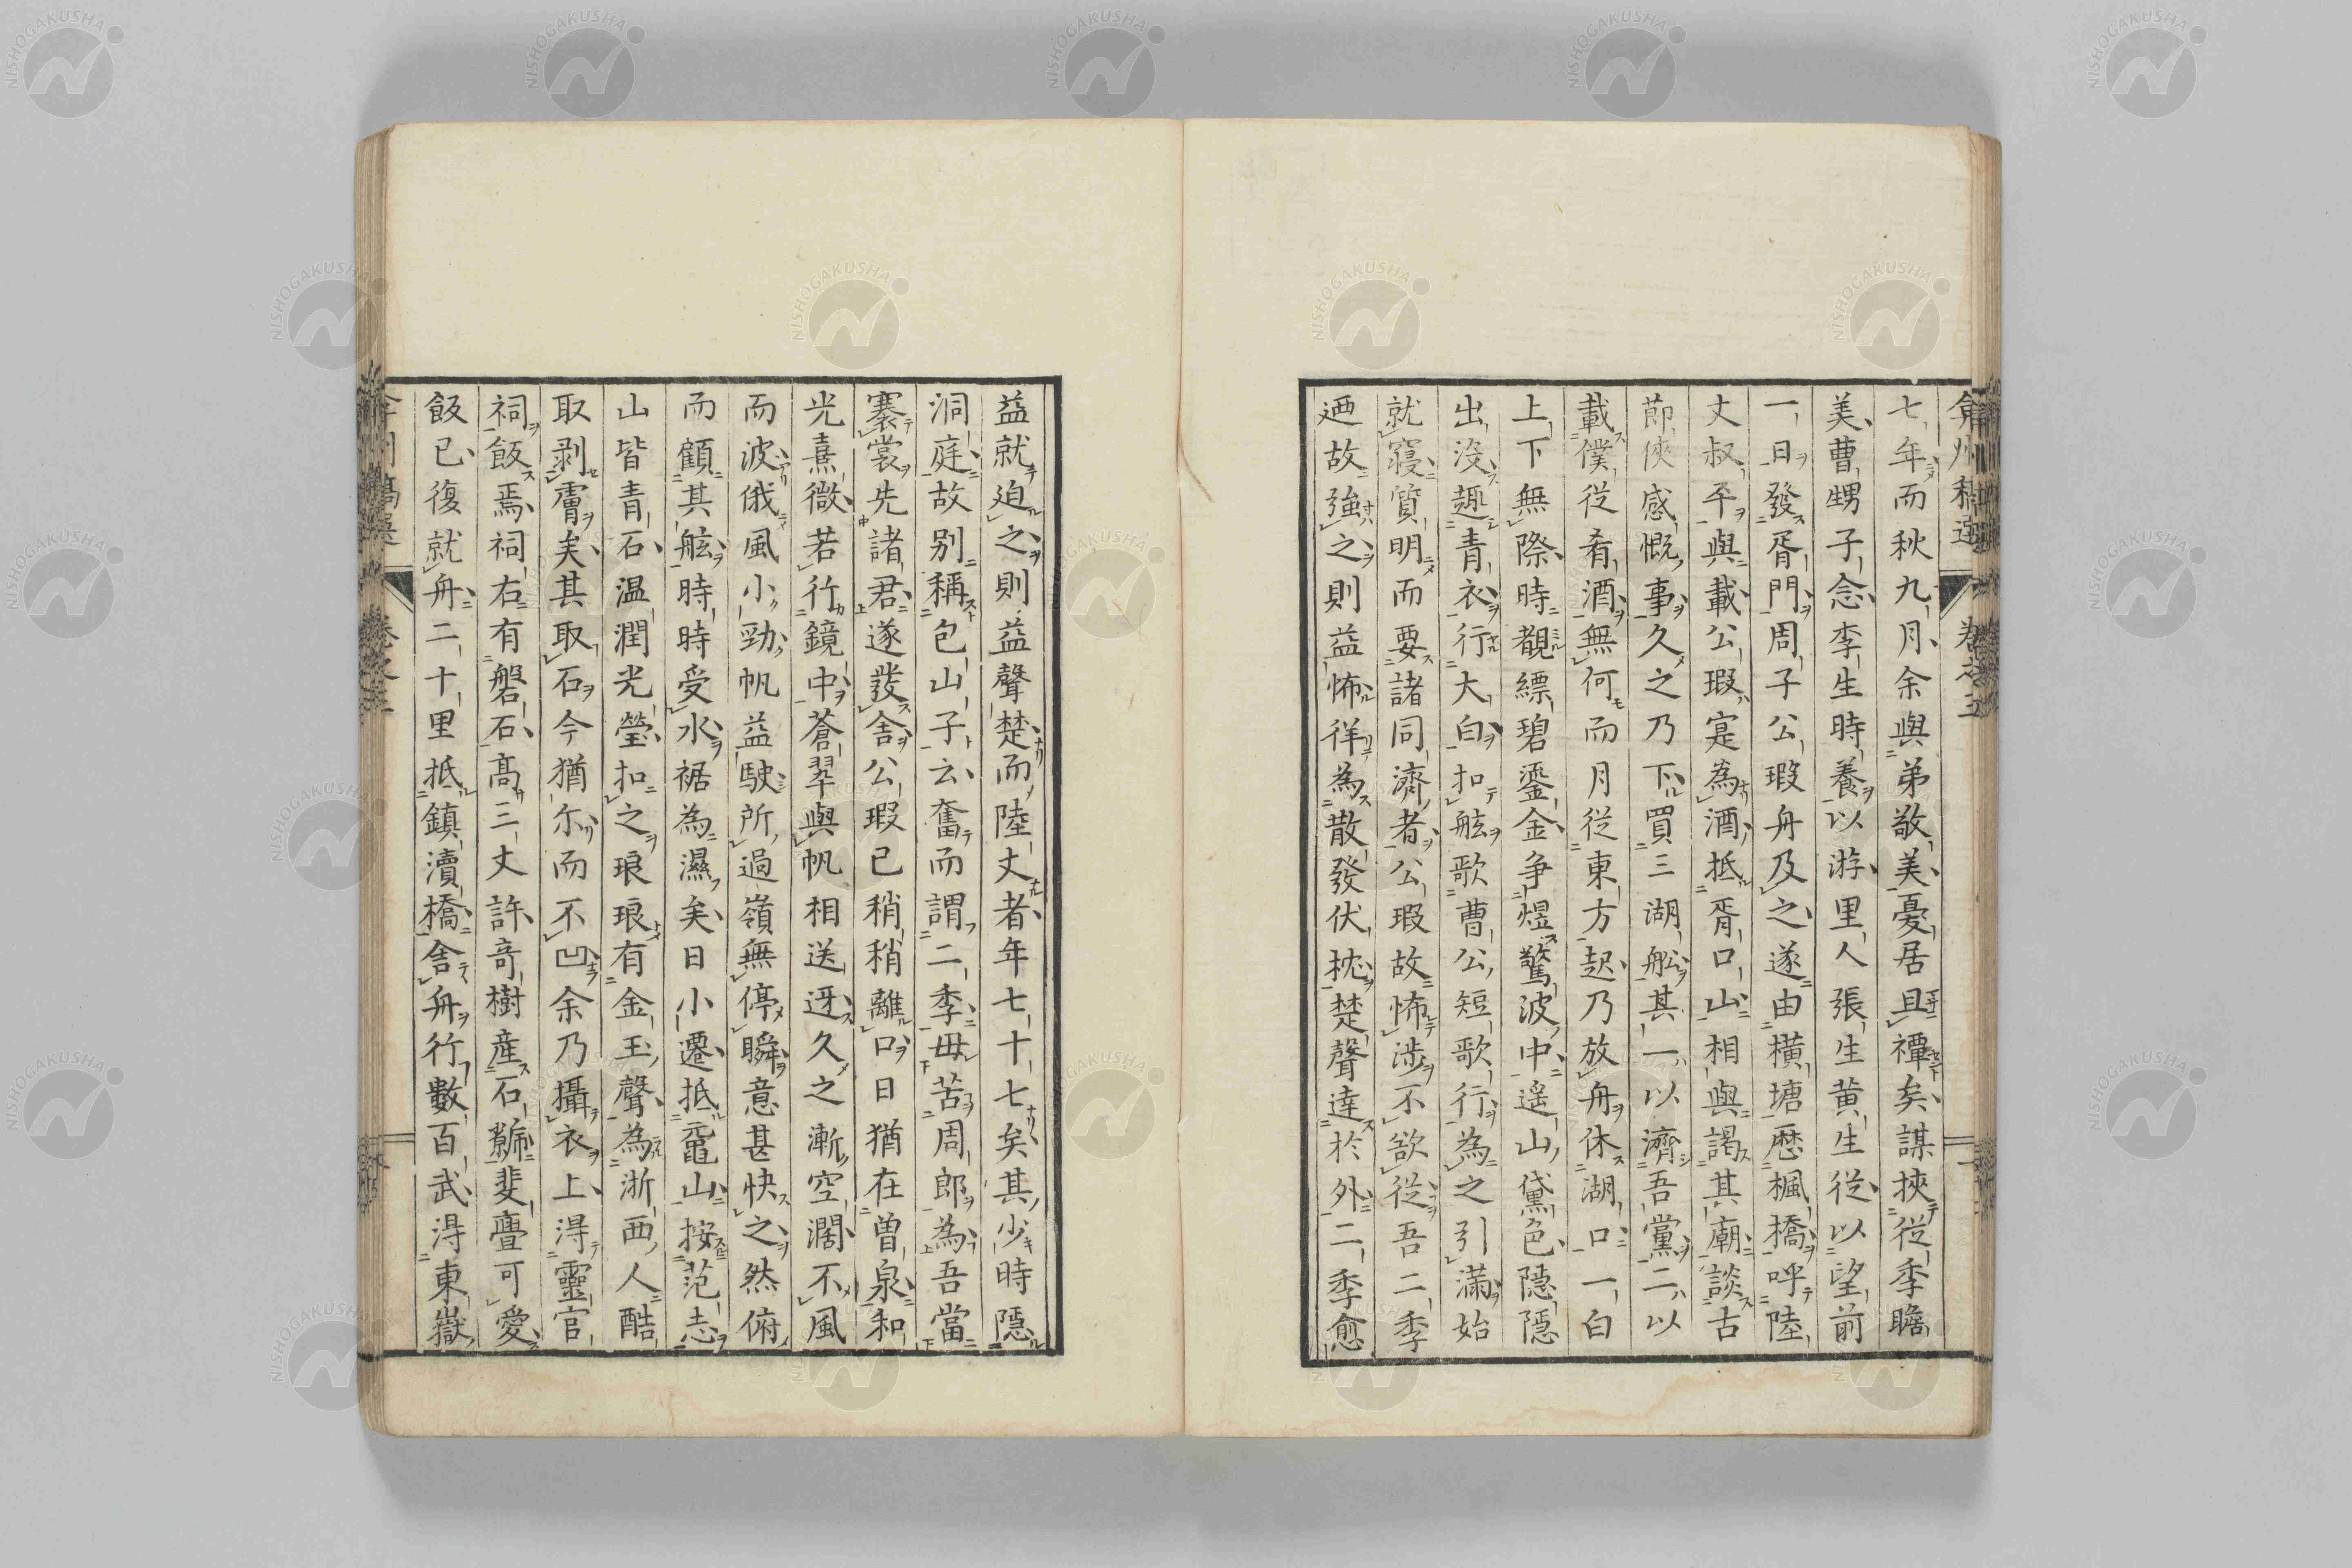 弇州稿選 卷之五
七年而秋九月余與弟敬美憂居且禫矣謀挾從季瞻
美曹甥子念李生時養以游里人張生黄生從以望前
一日發胥門周子公瑕舟及之遂由橫塘歷楓橋呼陸
丈叔平與載公瑕寔為酒抵胥口山相與謁其廟談古
節俠感慨事久之乃下買三湖舩其一以濟吾黨二以
載僕從肴酒無何而月從東方起乃放舟休湖口一白
上下無際時覩縹碧鎏金争煜驚波中遥山黛色隱隱
出沒趣青衣行大白扣舷歌曹公短歌行為之引滿始
就寢質明而要諸同濟者公瑕故怖涉不欲從吾二季
迺故強之則益怖徉為散發伏枕楚聲達於外二季愈
益就迫之則益聲楚而陸丈者年七十七矣其少時隱
洞庭故别稱包山子云奮而謂二季毋苦周郎為吾當
褰裳先諸君遂發舍公瑕已稍稍離口日猶在曽泉和
光熹微若行鏡中蒼翠與帆相送迓久之漸空濶不風
而波俄風小勁帆益駛所過嶺無停瞬意甚快之然俯
而顧其舷時時受水裾為濕矣日小遷抵黿山按范志
山皆青石温潤光瑩扣之琅琅有金玉聲為浙西人酷
取剥膚矣其取石今猶尓而不凹余乃攝衣上淂靈官
祠飯焉祠右有磐石髙三丈許竒樹産石觻斐亹可愛
飯已復就舟二十里抵鎮瀆橋舎舟行數百武淂東嶽